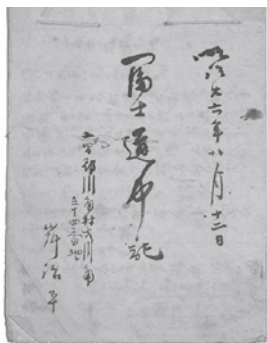 明治廿六年八月十二日
冨士道中記
入間郡川角村大川角
三十四番地
岸治平